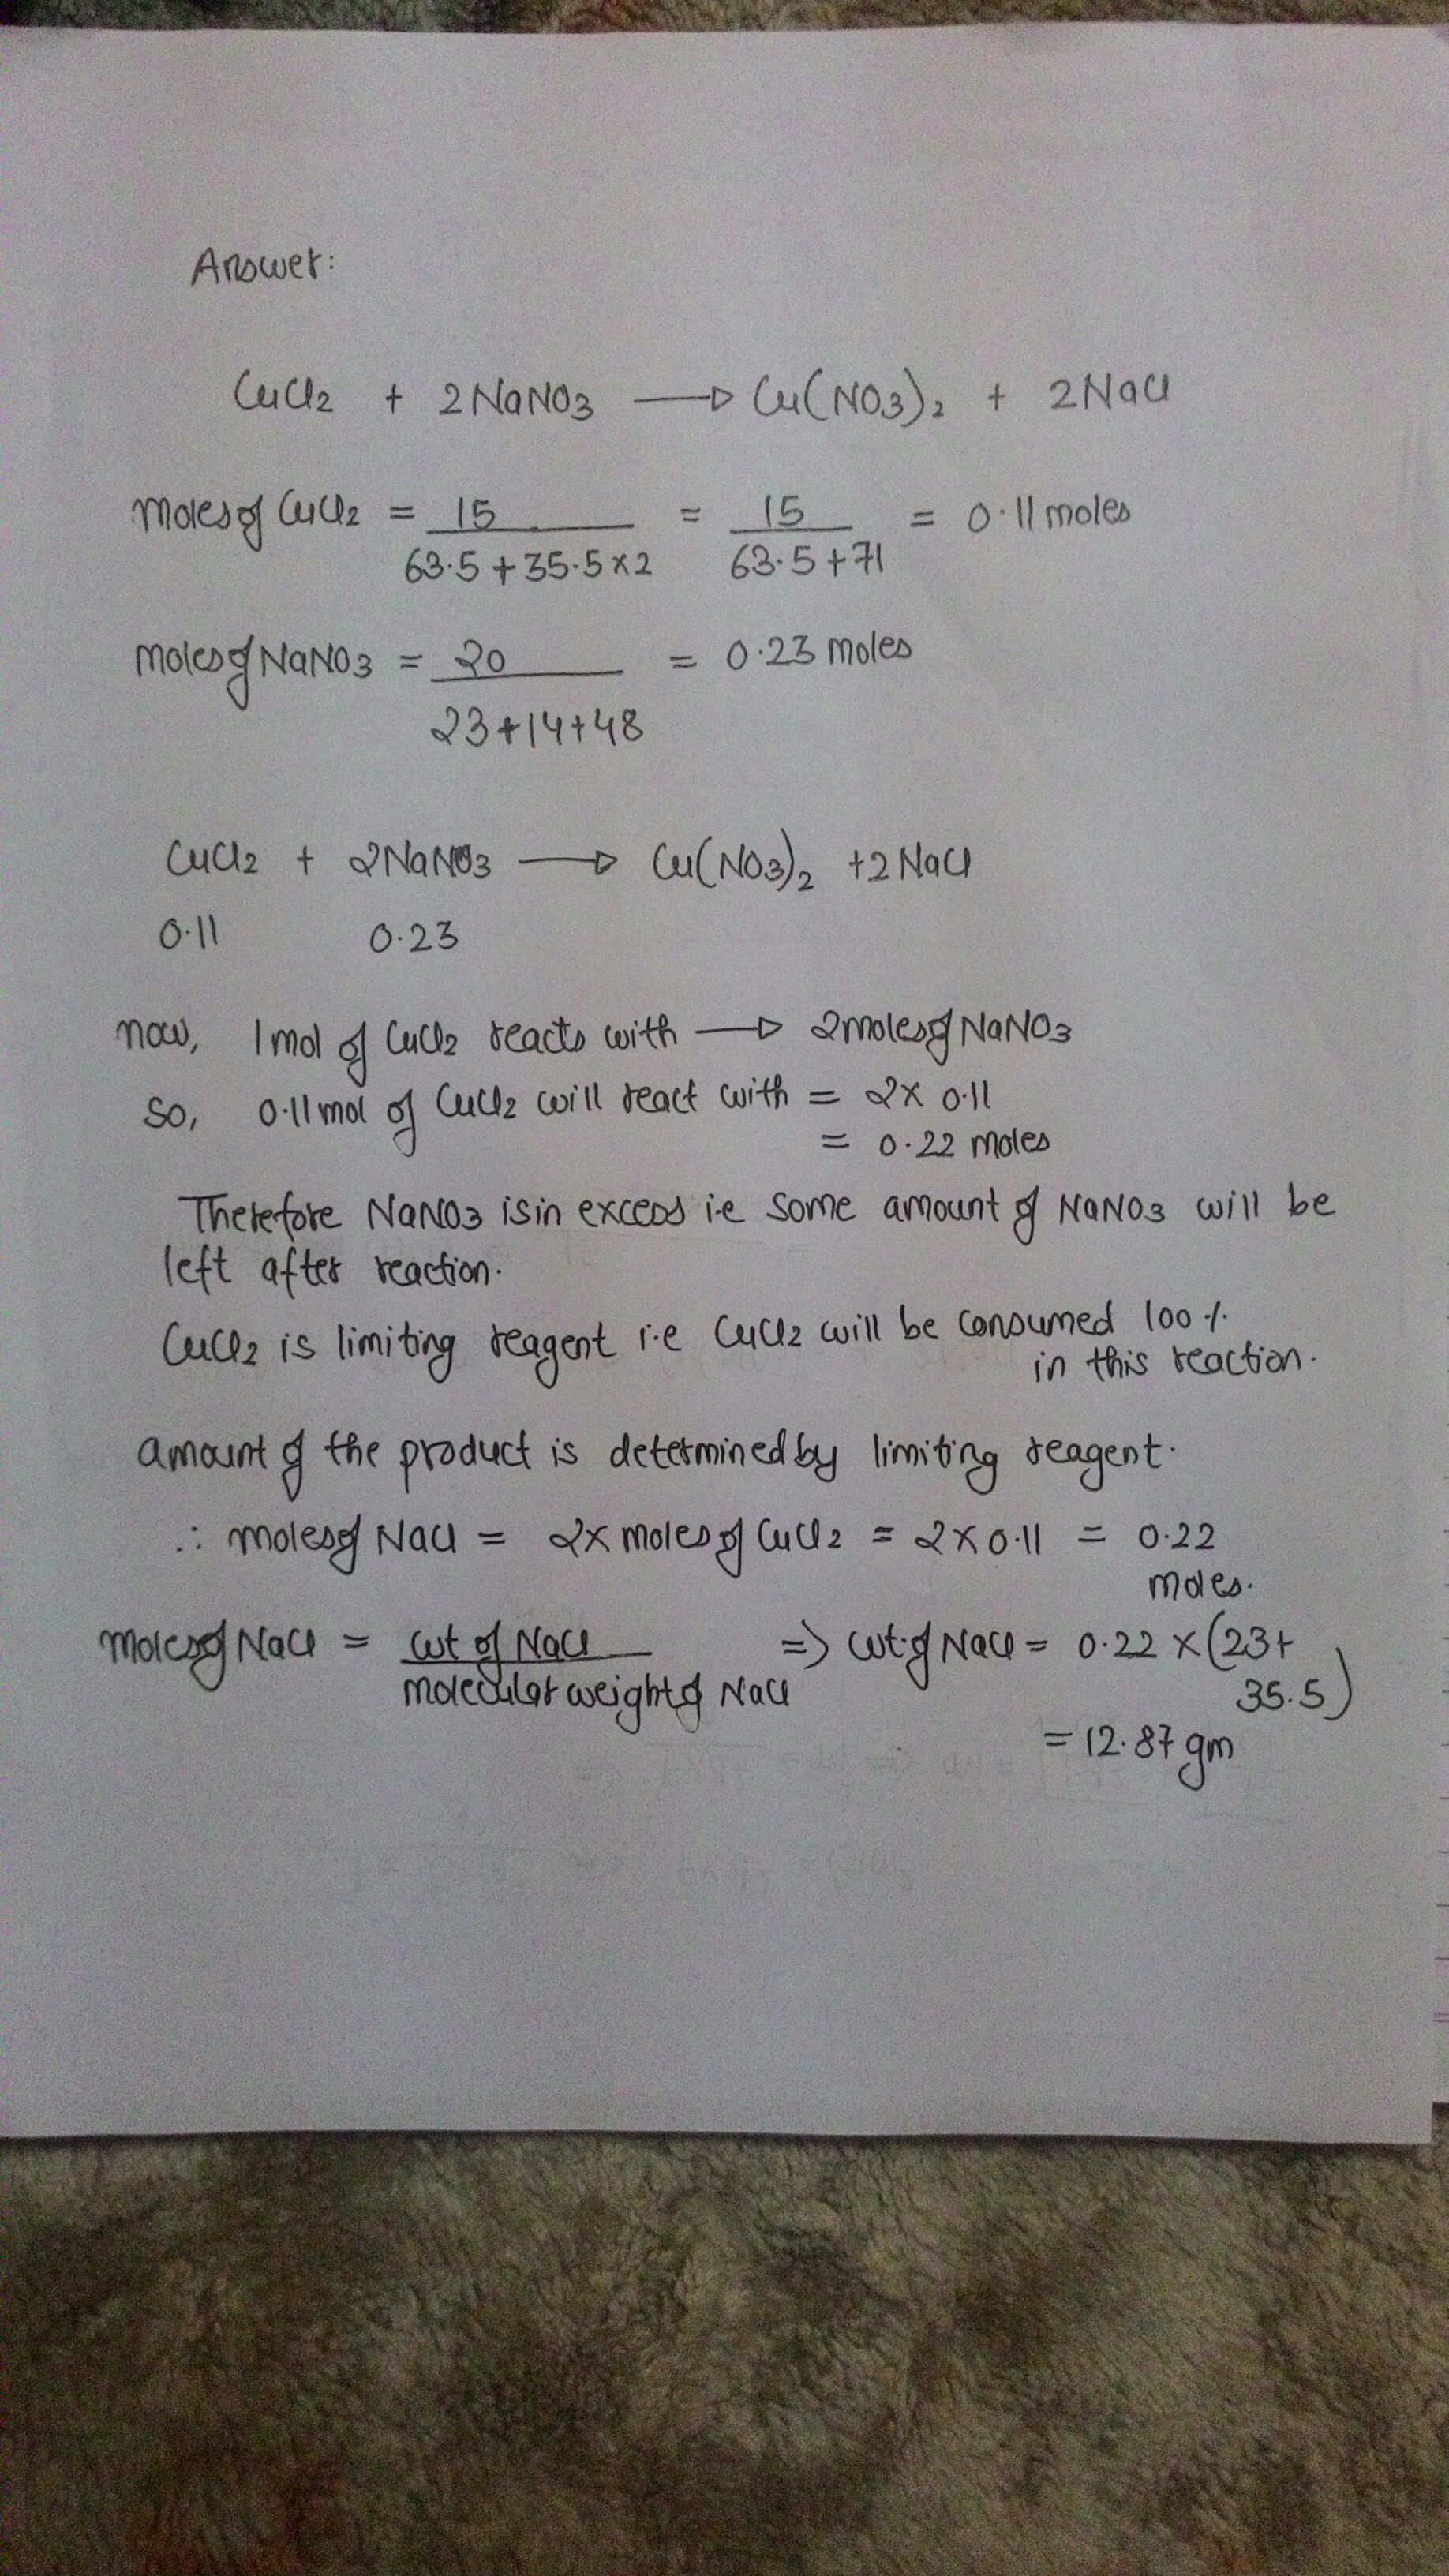 Answer:
CuCl2 + 2NaNO3 → Cu(NO3)2 + 2NaCl
moles of CuCl2 = 15 / 63.5+35.5×2 = 15 / 63.5+71 = 0.11 moles
moles of NaNO3 = 20 / 23+14+48 = 0.23 moles
CuCl2 + 2NaNO3 → Cu(NO3)2 +2NaCl
0.11 0.23
now, 1mol of CuCl2 reacts with → 2moles of NaNO3
so, 0.11mol of CuCl2 will react with = 2× 0.11
= 0.22 moles
Therefore NaNO3 is in excess i.e some amount of NaNO3 will be
left after reaction.
CuCl2 is limiting reagent i.e CuCl2 will be consumed 100%
in this reaction.
amount of the product is determined by limiting reagent.
∴ moles of NaCl = 2× moles of CuCl2 = 2×0.11 = 0.22
moles.
moles of NaCl = wt of NaCl / molecular weight of NaCl => wt. of NaCl = 0.22 ×(23+
35.5)
= 12.87 gm